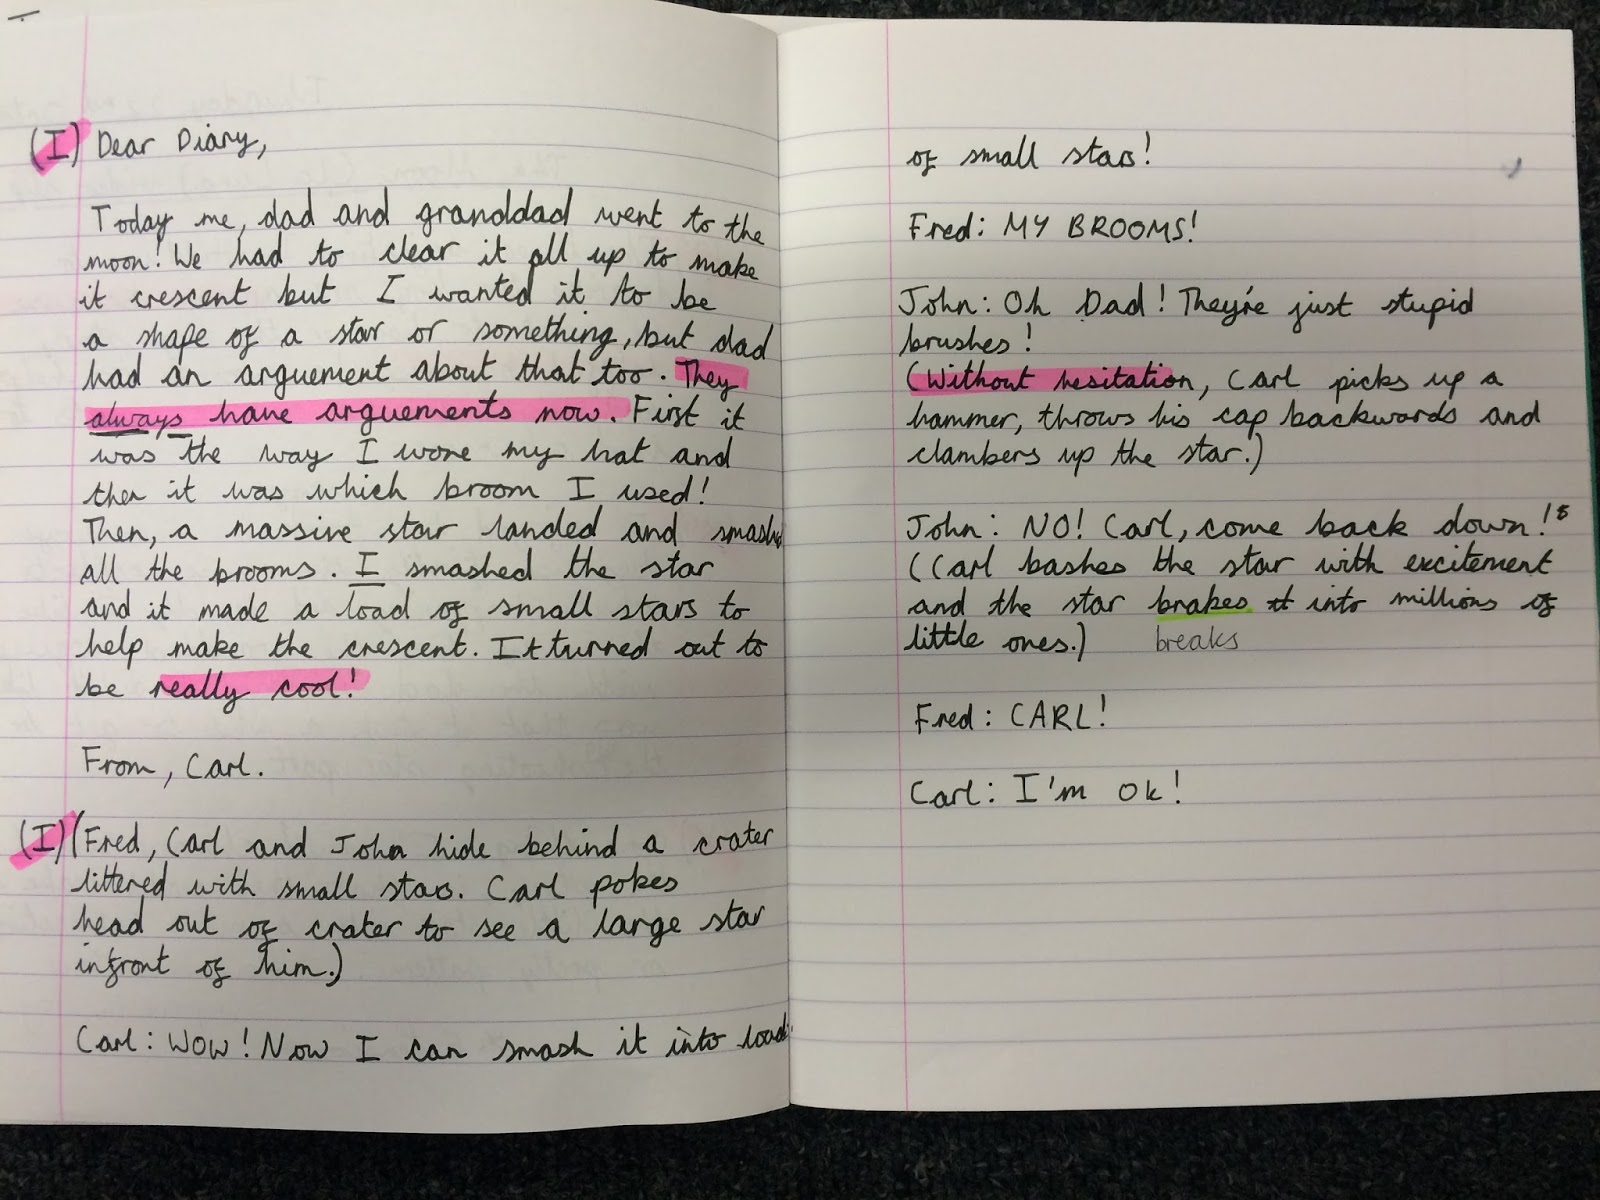 (I) Dear Diary,
Today me, dad and granddad went to the
moon! We had to clear it all up to make
it crescent but I wanted it to be
a shape of a star or something, but dad
had an arguement about that too. They
always have arguements now. First it
was the way I wore my hat and
then it was which broom I used!
Then, a massive star landed and smashed
all the brooms. I smashed the star
and it made a load of small stars to
help make the crescent. It turned out to
be really cool!
From, Carl.
(I) (Fred, Carl and John hide behind a crater
littered with small stars. Carl pokes
head out of crater to see a large star
infront of him.)
Carl: WOW! Now I can smash it into loads
of small stars!
Fred: MY BROOMS!
John: Oh Dad! They're just stupid
brushes!
(Without hesitation, Carl picks up a
hammer, throws his cap backwards and
clambers up the star.)
John: NO! Carl, come back down!
(Carl bashes the star with excitement
and the star brakes it into millions of
little ones.) breaks
Fred: CARL!
Carl: I'm Ok!